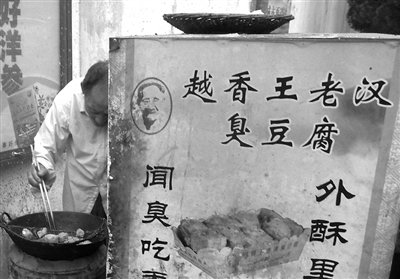 越香王老汉
臭豆腐
闻臭吃香
外酥里
好洋参